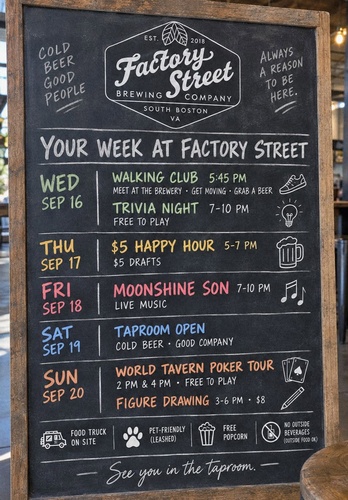 EST. 2018
COLD
BEER
GOOD
PEOPLE
Factory
Street
BREWING COMPANY
SOUTH BOSTON
VA
ALWAYS
A REASON
TO BE
HERE.
YOUR WEEK AT FACTORY STREET
WED
SEP 16
WALKING CLUB 5:45 PM
MEET AT THE BREWERY • GET MOVING • GRAB A BEER
TRIVIA NIGHT 7-10 PM
FREE TO PLAY
THU
SEP 17
$5 HAPPY HOUR 5-7 PM
$5 DRAFTS
FRI
SEP 18
MOONSHINE SON 7-10 PM
LIVE MUSIC
SAT
SEP 19
TAPROOM OPEN
COLD BEER • GOOD COMPANY
SUN
SEP 20
WORLD TAVERN POKER TOUR
2 PM & 4 PM • FREE TO PLAY
FIGURE DRAWING 3-6 PM • $8
FOOD TRUCK
ON SITE
PET-FRIENDLY
(LEASHED)
FREE
POPCORN
NO OUTSIDE
BEVERAGES
(OUTSIDE FOOD OK)
See you in the taproom.